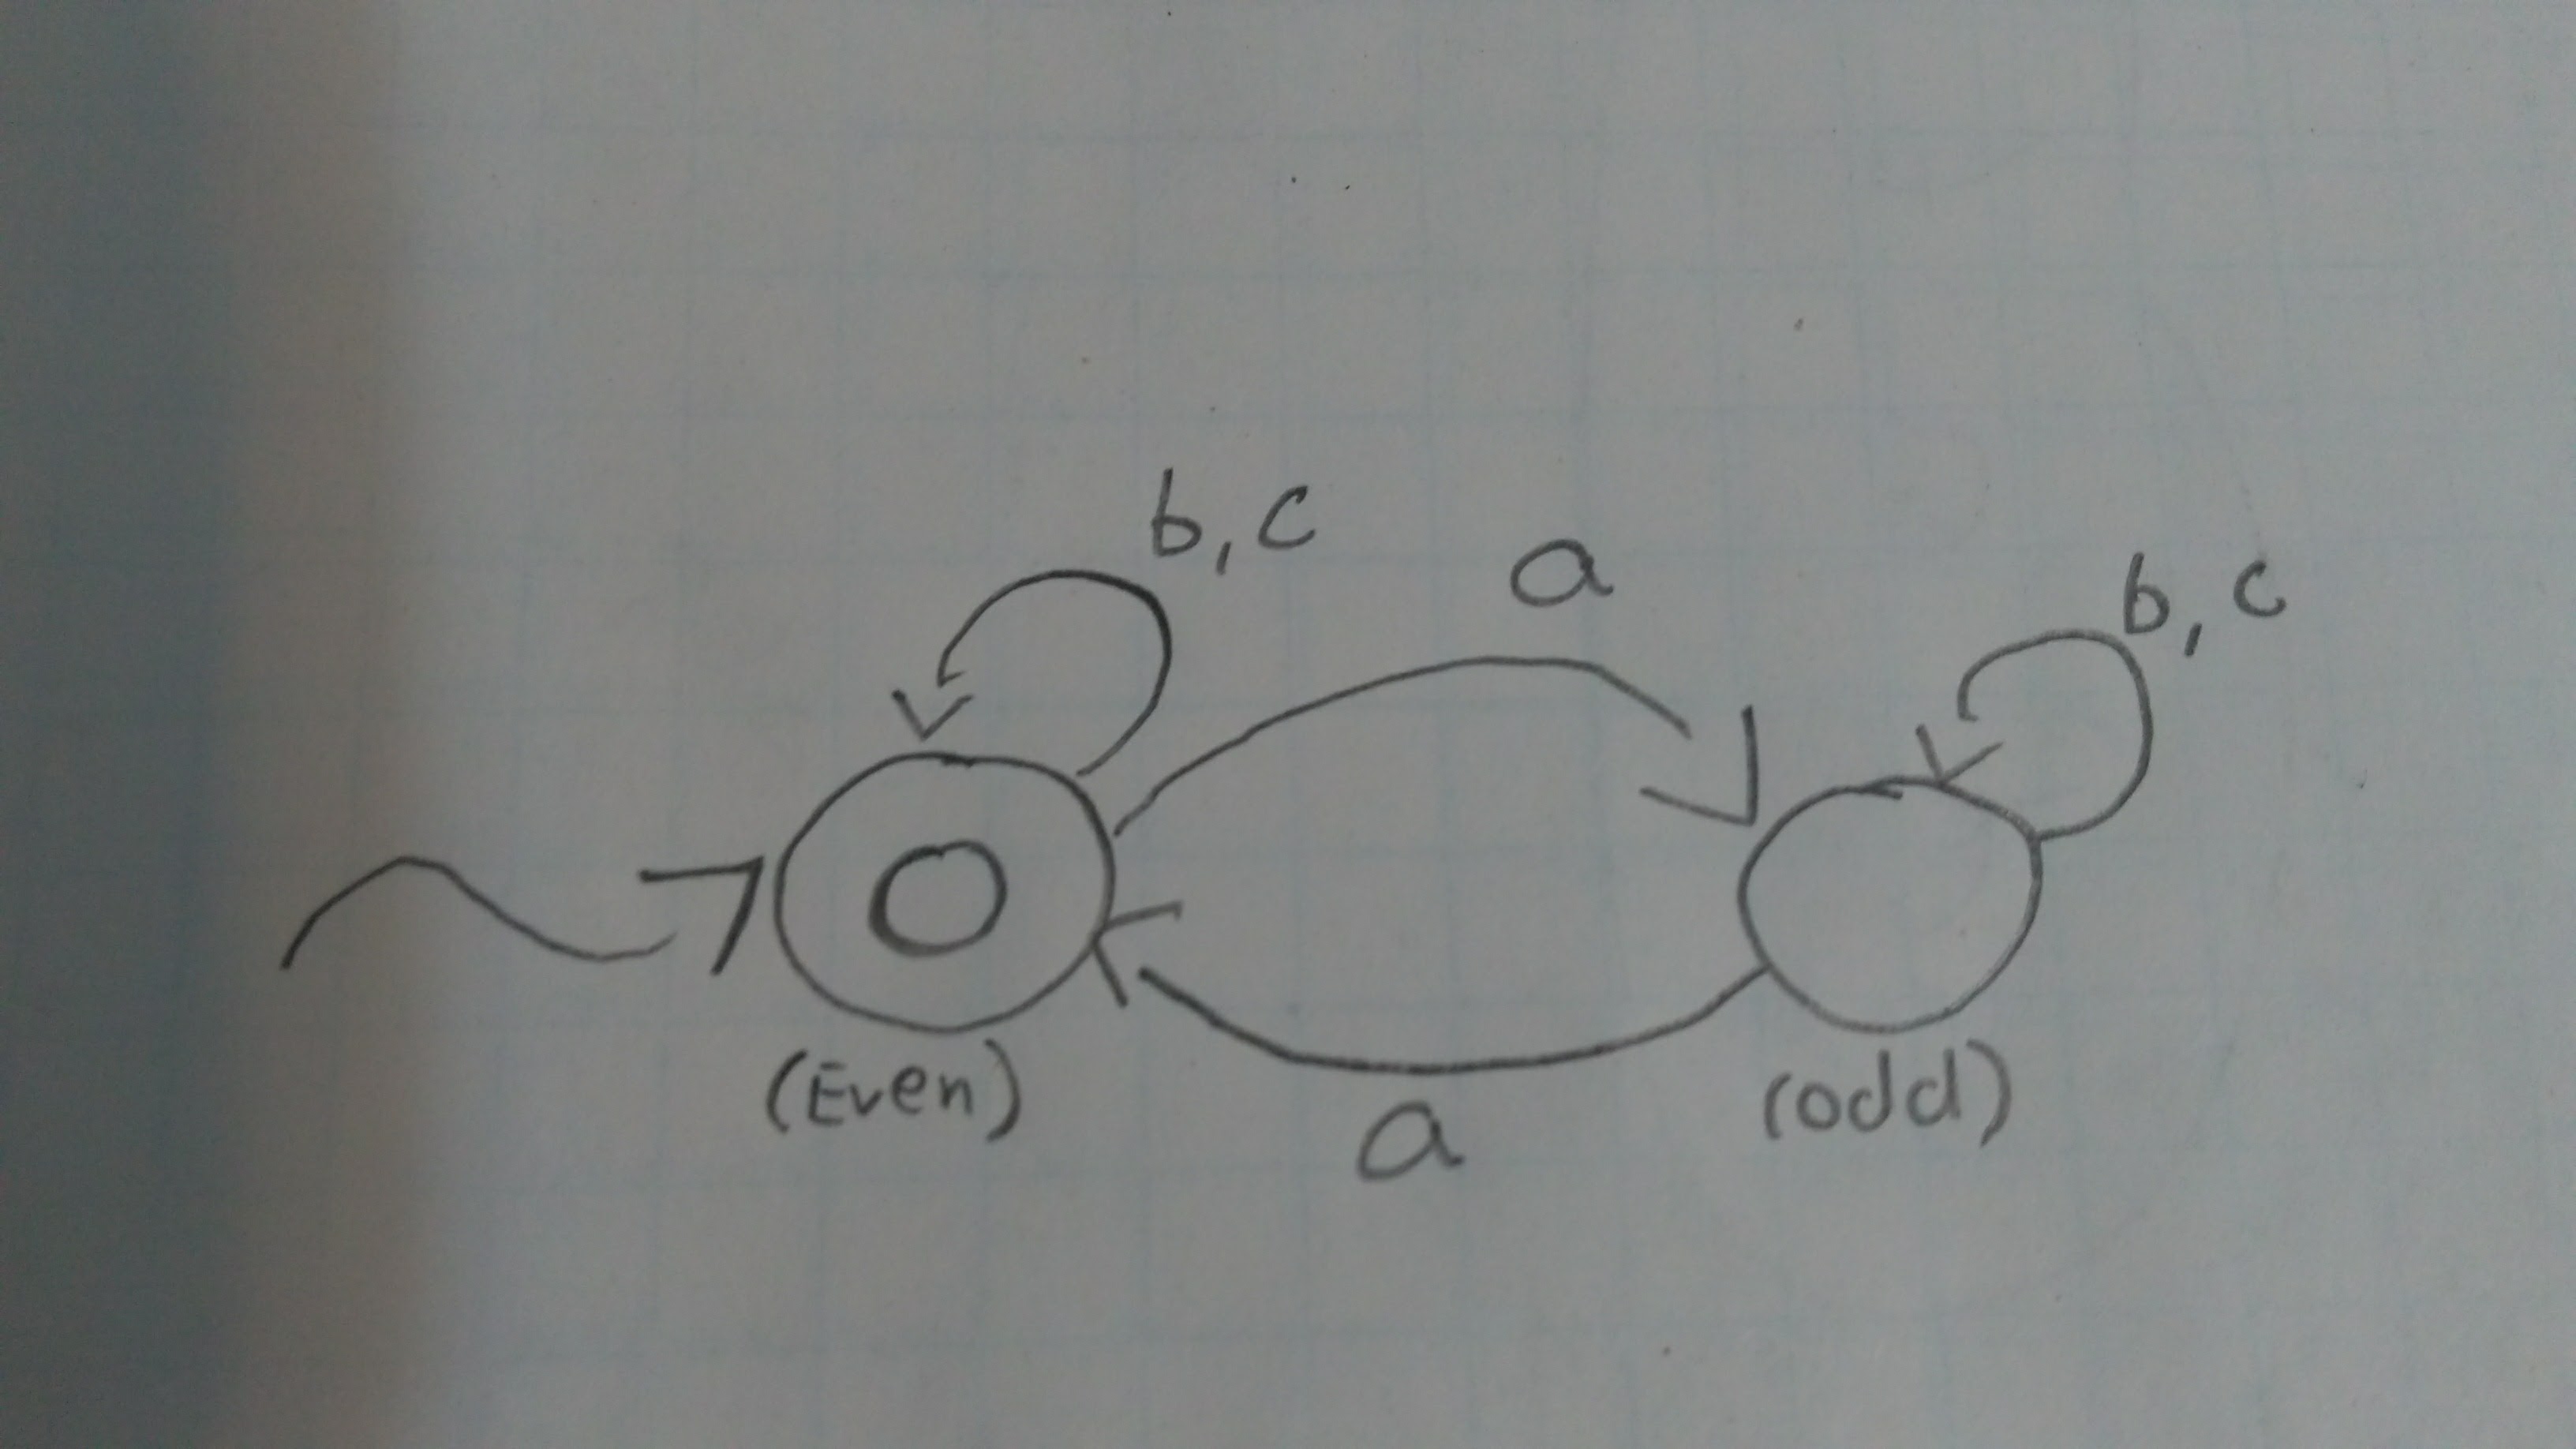 b, c
a
b, c
(Even)
(odd)
a